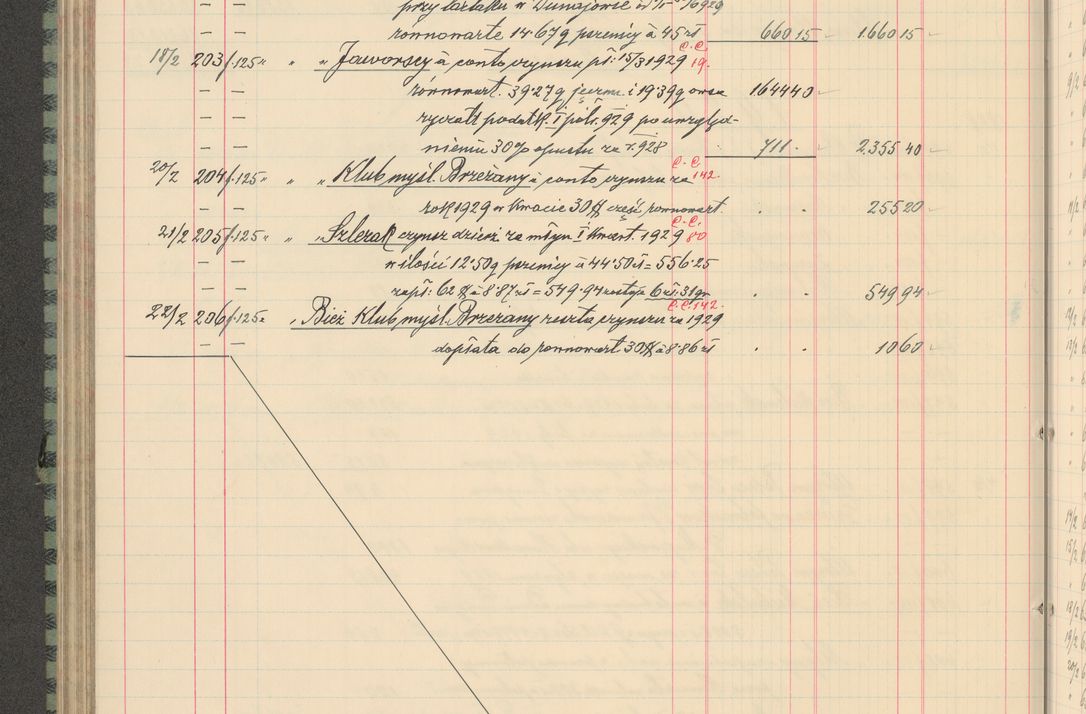 przy tartaku w Dunajowie
— — równowarte 14·67q pszenicy à 45 zł 660 15 1.660 15
18/2 203 f.125 " " " Jaworscy à conto czynszu pł: 15/3 1929 C.C. 19.
— — równowart. 39·27q jęczm. i 19·39q owsa 1644 40
ryczałt podatk. I półr. 929 po uwzględ-
— — nieniu 30% opustu za r. 928 711 · 2.355 40
20/2 204 f.125 " " " Klub myśl. Brzeżany à conto czynszu za C.C. 142.
— — rok 1929 w kwocie 30 $ część równowart. . . 255 20
21/2 205 f.125 " " " Szlezak czynsz dzierż. za młyn I kwart. 1929 C.C. 80
— — w ilości 12·50q pszenicy à 44·50 zł = 556·25
— — zapł: 62 $ à 8·87 zł = 549·94 zostaje 6 zł. 31 gr . . 549 94
22/2 206 f.125 " " Bież Klub myśl. Brzeżany reszta czynszu za 1929 C.C. 142.
— — dopłata do równowart. 30 $ à 8·86 zł . . 10 60